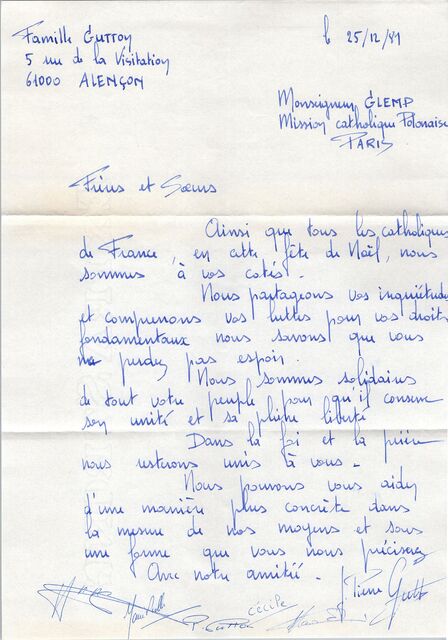 Famille GUTTON
5 rue de la Visitation
61000 ALENÇON
le 25/12/81
Monseigneur GLEMP
Mission catholique Polonaise
PARIS
Frères et Sœurs
Ainsi que tous les catholiques
de France, en cette fête de Noël, nous
sommes à vos cotés.
Nous partageons vos inquiétudes
et comprenons vos luttes pour vos droits
fondamentaux nous savons que vous
ne perdez pas espoir.
Nous sommes solidaires
de tout votre peuple pour qu'il conserve
son unité et sa pleine liberté
Dans la foi et la prière
nous resterons unis à vous.
Nous pouvons vous aider
d'une manière plus concrète dans
la mesure de nos moyens et sous
une forme que vous nous préciserez
Avec notre amitié.
Pierre Gutton
P. Gutton
Cécile